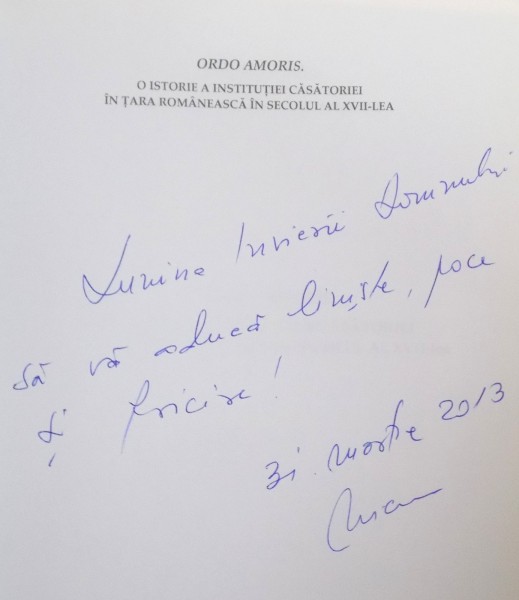 ORDO AMORIS.
O ISTORIE A INSTITUȚIEI CĂSĂTORIEI
ÎN ȚARA ROMÂNEASCĂ ÎN SECOLUL AL XVII-LEA
Lumina Învierii Domnului
să vă aducă liniște, pace
și fericire!
31 martie 2013